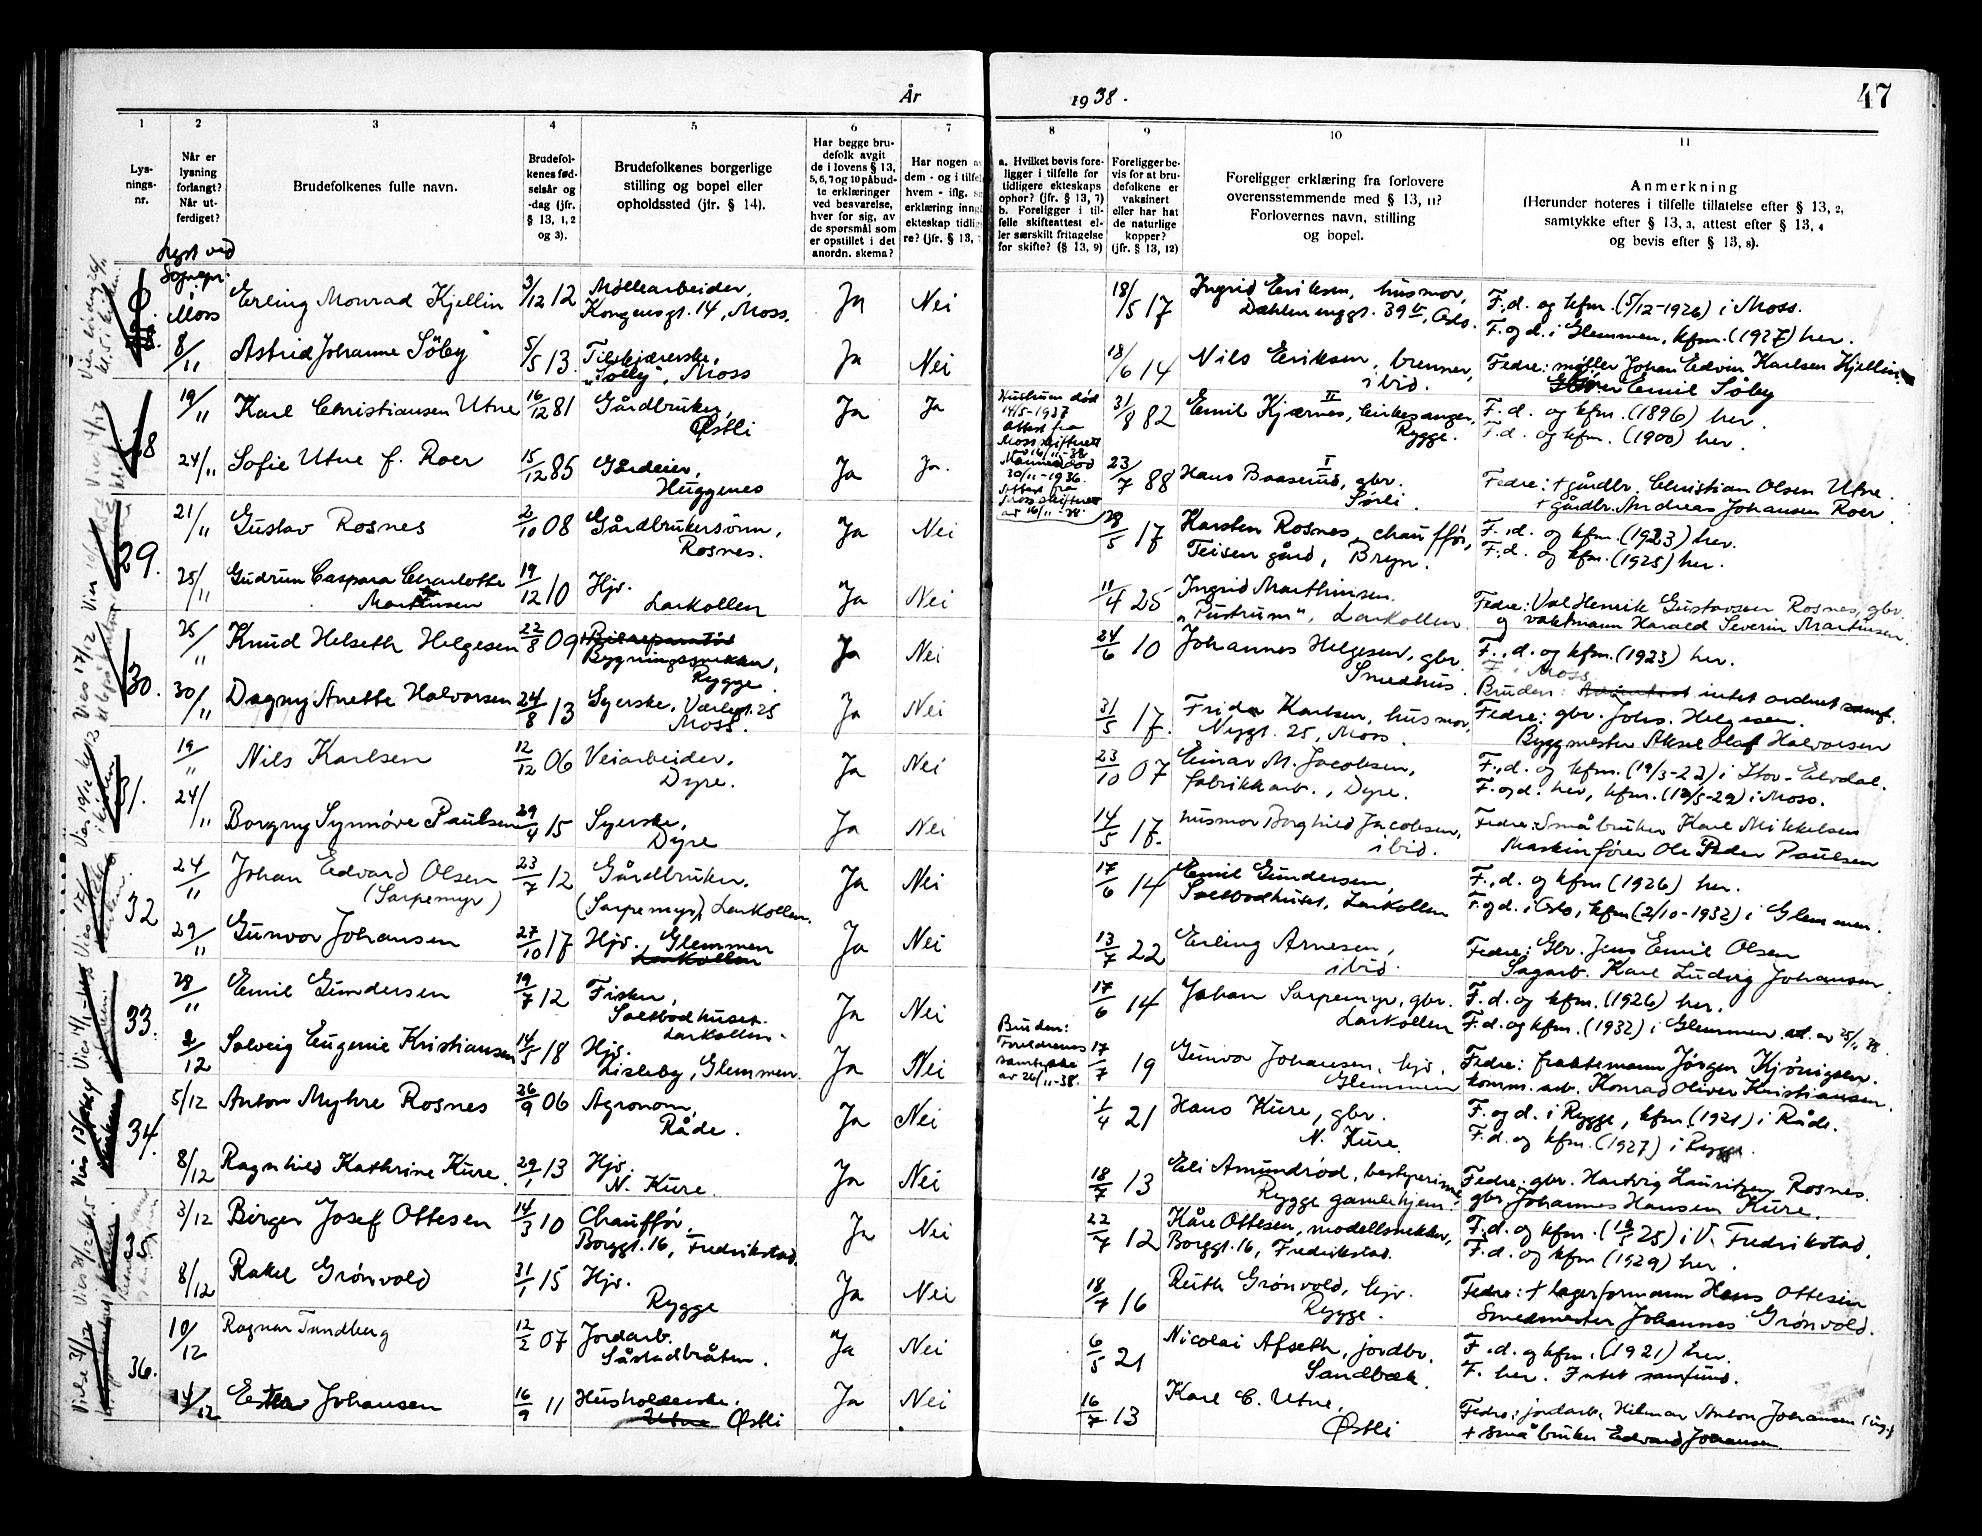 År
1938.
47
1
2
3
4
5
6
7
8
9
10
11
Lys-
nings-
nr.
Når er
lysning
forlangt?
Når ut-
ferdiget?
Brudefolkenes fulle navn.
Brudefol-
kenes fød-
selsår og
-dag (jfr.
§ 13, 1, 2
og 3).
Brudefolkenes borgerlige
stilling og bopel eller
opholdssted (jfr. § 14).
Har begge bru-
defolk avgit
de i lovens § 13,
5, 6, 7 og 10 påbud-
te erklæringer
ved besvarelse,
hver for sig, av
de spørsmål som
er opstillet i det
anordn. skema?
Har nogen av
dem - og i tilfel
hvem - iflg.
erklæring inng
ekteskap tidlig
re? (jfr. § 13,
a. Hvilket bevis fore-
ligger i tilfelle for
tidligere ekteskaps
ophør? (jfr. § 13, 7)
b. Foreligger i til-
felle skifteattest el-
ler særskilt fritagelse
for skifte? (§ 13, 9)
Foreligger be-
vis for at bru-
defolkene er
vaksinert
eller har hat
de naturlige
kopper?
(jfr. § 13, 12)
Foreligger erklæring fra forlovere
overensstemmende med § 13, 11?
Forlovernes navn, stilling
og bopel.
Anmerkning
(Herunder noteres i tilfelle tillatelse efter § 13, 2,
samtykke efter § 13, 3, attest efter § 13, 4
og bevis efter § 13, 8).
Lyst ved
Sognepr.
i
Moss
8/11
Erling Monrad Kjellin
3/12 12
Møllearbeider,
Kongensgt. 14, Moss.
Ja
Nei
18/5 17
Ingrid Eriksen, husmor,
Dæhlenenggt. 39 II, Oslo.
F., d. og kfm. (5/12-1926) i Moss.
F. og d. i Glemmen, kfm. (1927) her.
Astrid Johanne Söby
5/5 13
"Solby", Moss
Ja
Nei
18/6 14
Nils Eriksen, brenner,
ibid.
Fedre: møller Johan Edvin Karlsen Kjellin.
Emil Söby
28
19/11
Karl Christiansen Utne
16/12 81
Gårdbruker,
Østli
Ja
Ja
Hustrum død
14/5-1937
Attest fra
Moss skifterett
16/11-38
31/8 82
Emil Kjærnes, kirkesanger,
Rygge.
F. d. og kfm. (1896) her.
F. d. og kfm. (1900) her.
24/11
Sofie Utne f. Roer
15/12 85
Gårdeier,
Huggenes
Ja
Ja.
Mannen død
30/11-1936.
Attest fra
Moss skifterett
av 16/11-38.
23/7 88
Hans Baaserud, gbr.
Sørli
Fedre: + gårdbr. Christian Olsen Utne.
+ gårdbr. Andreas Johansen Roer
29.
21/11
Gustav Rosnes
2/10 08
Gårdbrukersønn,
Rosnes.
Ja
Nei
28/5 17
Karsten Rosnes, chauffør,
Teisen gård, Bryn.
F., d. og kfm. (1923) her.
F. d. og kfm. (1925) her.
25/11
Gudrun Caspara Charlotte
Marthinsen
19/12 10
Hjv.
Larkollen
Ja
Nei
11/4 25
Ingrid Marthinsen.
"Furtrum", Larkollen
Fedre: Val Henrik Gustavsen Rosnes, gbr.
og vaktmann Harald Severin Martinsen.
30.
25/11
Knud Helseth Helgesen
22/8 09
Bilreparatør
Bygningssnekker,
Rygge.
Ja
Nei
24/6 10
Johannes Helgesen, gbr.
Smedhus.
F., d. og kfm. (1923) her.
F. i Moss.
30/11
Dagny Anette Halvorsen
24/8 13
Syerske, Værlegt. 25
Moss.
Ja
Nei
31/5 17.
Frida Karlsen, husmor,
Nygt. 25, Moss.
Bruden: intet ordnet samf.
Fedre: gbr. Johs. Helgesen.
Byggmester Aksel Olaf Halvorsen
31.
19/11
Nils Karlsen
12/12 06
Veiarbeider,
Dyre.
Ja
Nei
23/10 07
Einar M. Jacobsen,
fabrikkarb., Dyre.
F., d. og kfm. (19/3-22) i Stor-Elvdal.
F. og d. her, kfm. (12/5-29) i Moss.
24/11
Borgny Synnøve Paulsen
29/4 15
Syerske,
Dyre
Ja
Nei
14/5 17.
husmor Borghild Jacobsen,
ibid.
Fedre: Småbruker Karl Mikkelsen
Maskinfører Ole Peder Paulsen
32
24/11
Johan Edvard Olsen
(Sarpemyr)
23/7 12
Gårdbruker.
(Sarpemyr), Larkollen.
Ja
Nei
17/6 14
Emil Gundersen,
Saltbodhuset, Larkollen
F., d. og kfm (1926) her.
F. og d. i Oslo, kfm (2/10-1932) i Glemmen.
29/11
Gunvor Johansen
27/10 17
Hjv. Glemmen
Larkollen
Ja
Nei
13/7 22
Erling Arnesen,
ibid.
Fedre: Gbr. Jens Emil Olsen
Sagarb. Karl Ludvig Johansen.
33.
28/11
Emil Gundersen
19/7 12
Fisker,
Saltbodhuset.
Larkollen.
Ja
Nei
17/6 14
Johan Sarpemyr, gbr.
Larkollen
F. d. og kfm. (1926) her.
F. d. og kfm. (1932) i Glemmen att. av 25/11 38.
2/12
Solveig Eugenie Kristiansen
14/5 18
Hjv.
Lisleby, Glemmen.
Ja
Nei
Bruden:
Foreldrenes
samtykke
av 26/11-38.
17/7 19
Gunvor Johansen, hjv.
Glemmen
Fedre: fraktemann Jørgen Kjönigsen.
komm. arb. Konrad Oliver Kristiansen.
34.
5/12
Anton Myhre Rosnes
26/9 06
Agronom,
Råde.
Ja
Nei
1/4 21
Hans Kure, gbr.
N. Kure
F. og d. i Rygge, kfm. (1921) i Råde.
F. d. og kfm. (1927) i Rygge.
8/12
Ragnhild Kathrine Kure.
29/1 13
Hjv.
N. Kure.
Ja
Nei
18/7 13
Eli Amundrød, bestyrerinne
Rygge gamlehjem.
Fedre: gbr. Hartvig Lauritzen Rosnes.
gbr. Johannes Hansen Kure.
3/12
Birger Josef Ottesen
14/3 10
Chauffør,
Borggt. 16, Fredrikstad.
Ja
Nei
22/7 12
Kåre Ottesen, modellsnekker,
Borggt. 16, Fredrikstad.
F. d. og kfm. (10/5 25) i V. Fredrikstad.
F. d. og kfm (1929) her.
8/12
Rakel Grønvold
31/1 15
Hjv.
Rygge
Ja
Nei
18/4 16
Ruth Grønvold, hjv.
Rygge.
Fedre: + lagerformann Hans Ottesen
Smedmester Johannes Grønvold.
36.
10/12
Ragnar Tandberg
12/2 07
Jordarb.
Såstadbråten.
Ja
Nei
6/5 21
Nicolai Afseth, jordbr.
Sandbæk.
F. d. og kfm. (1921) her.
F. her. Intet samfund.
14/12
Ester Johansen
16/9 11
Husholderske.
Utne Østli
Ja
Nei
16/7 13
Karl C. Utne,
Østli
Fedre: jordarb. Hilmar Anton Johansen
+ småbruker Edvard Johansen